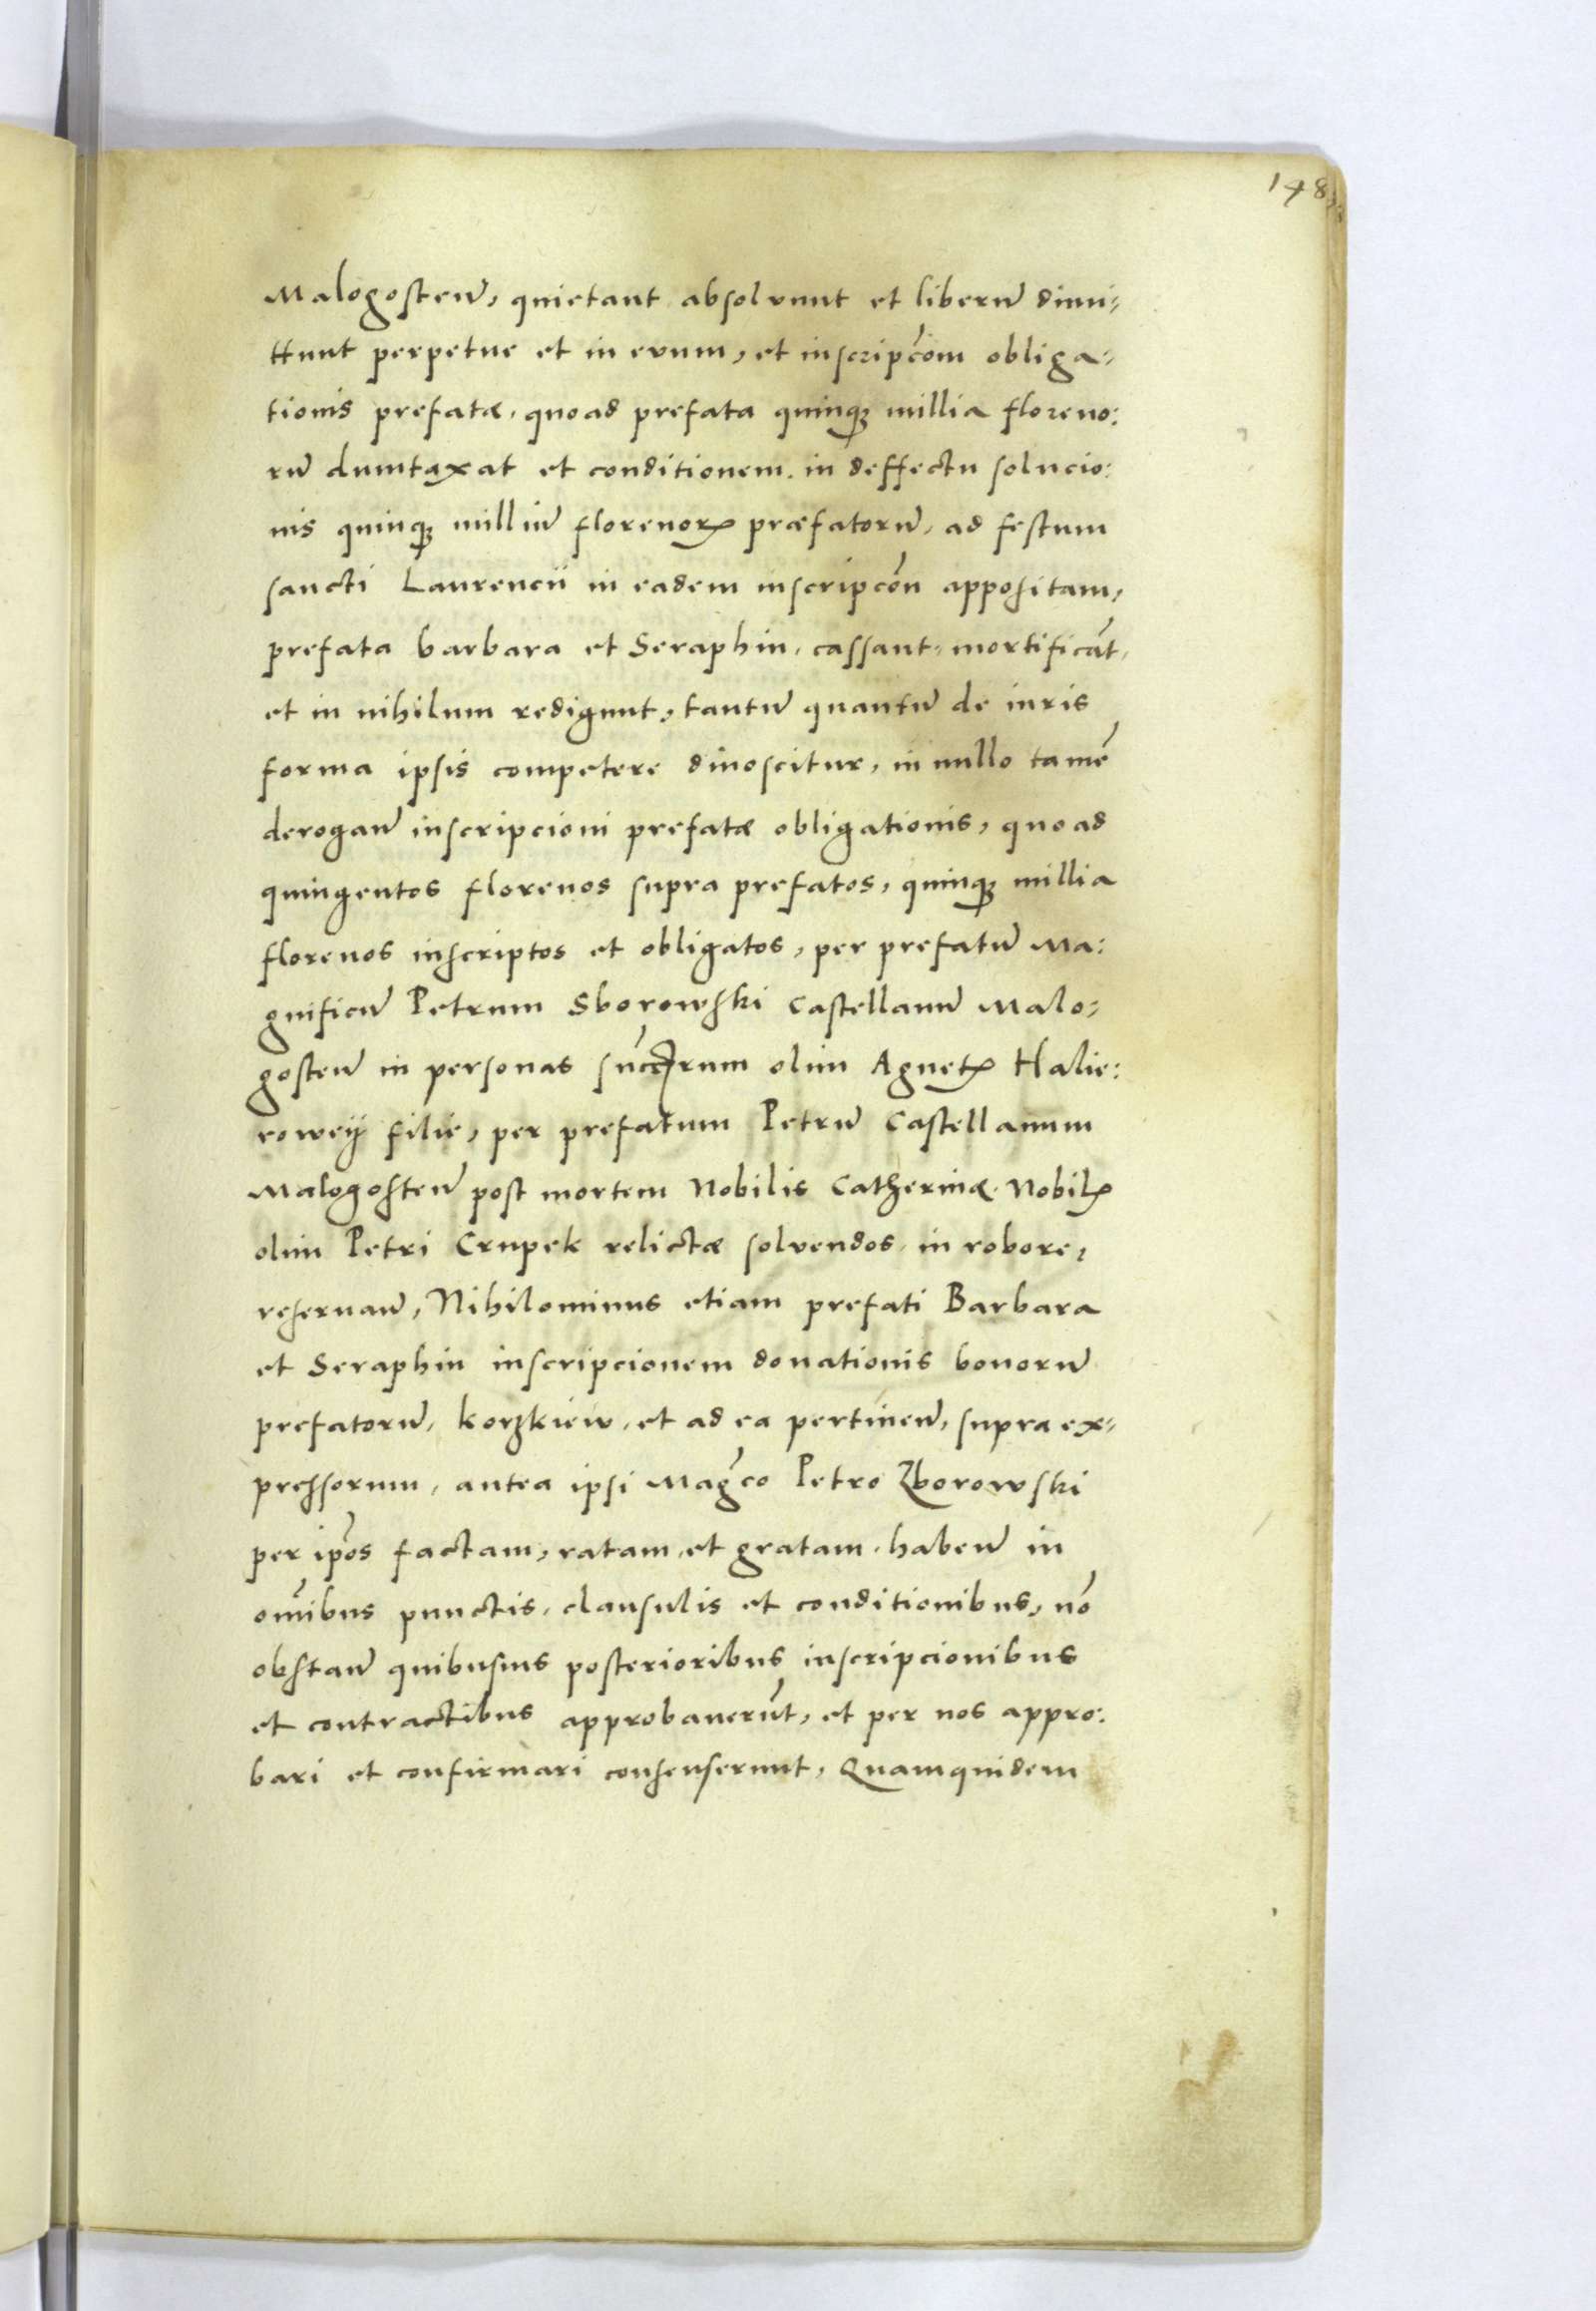 148
Malogosten̄, quietant absolvunt et liberū dimi-
ttunt perpetue et in evum, et inscripc̄iom obliga-
tionis prefatæ, quoad prefata quinqꝫ millia floreno:
rū dumtaxat et conditionem in deffectu solucio:
nis quinqꝫ milliū florenorꝝ præfatorū, ad festum
sancti Laurencii in eadem inscripcōn appositam,
prefata barbara et Seraphin, cassant, mortificāt,
et in nihilum redigunt, tantū quantū de iuris
forma ipsis competere dinoscitur, in nullo tamē
derogan̄ inscripcioni prefatæ obligationis, quoad
quingentos florenos supra prefatos, quinqꝫ millia
florenos inscriptos et obligatos, per prefatū Ma:
gnificū Petrum Sborowski Castellanū Malo-
gosten̄ in personas olim Agnetꝭ Halie:
rowey filie, per prefatum Petrū Castellanum
Malogosten̄ post mortem Nobilis Catherinæ Nobilꝭ
olim Petri Crupek relictæ solvendos in robore,
reservan̄, Nihilominus etiam prefati Barbara
et Seraphin inscripcionem donationis bonorū
prefatorū, korzkiew, et ad ea pertinen̄, supra ex-
pressorum, antea ipsi Mag̃co Petro Zborowski
per ip̄os factam, ratam et gratam haben̄ in
om̄ibus punctis, clausulis et conditionibus, nō
obstan̄ quibusvis posterioribus inscripcionibus
et contractibus approbaverūt, et per nos appro:
bari et confirmari consenserunt, Quamquidem